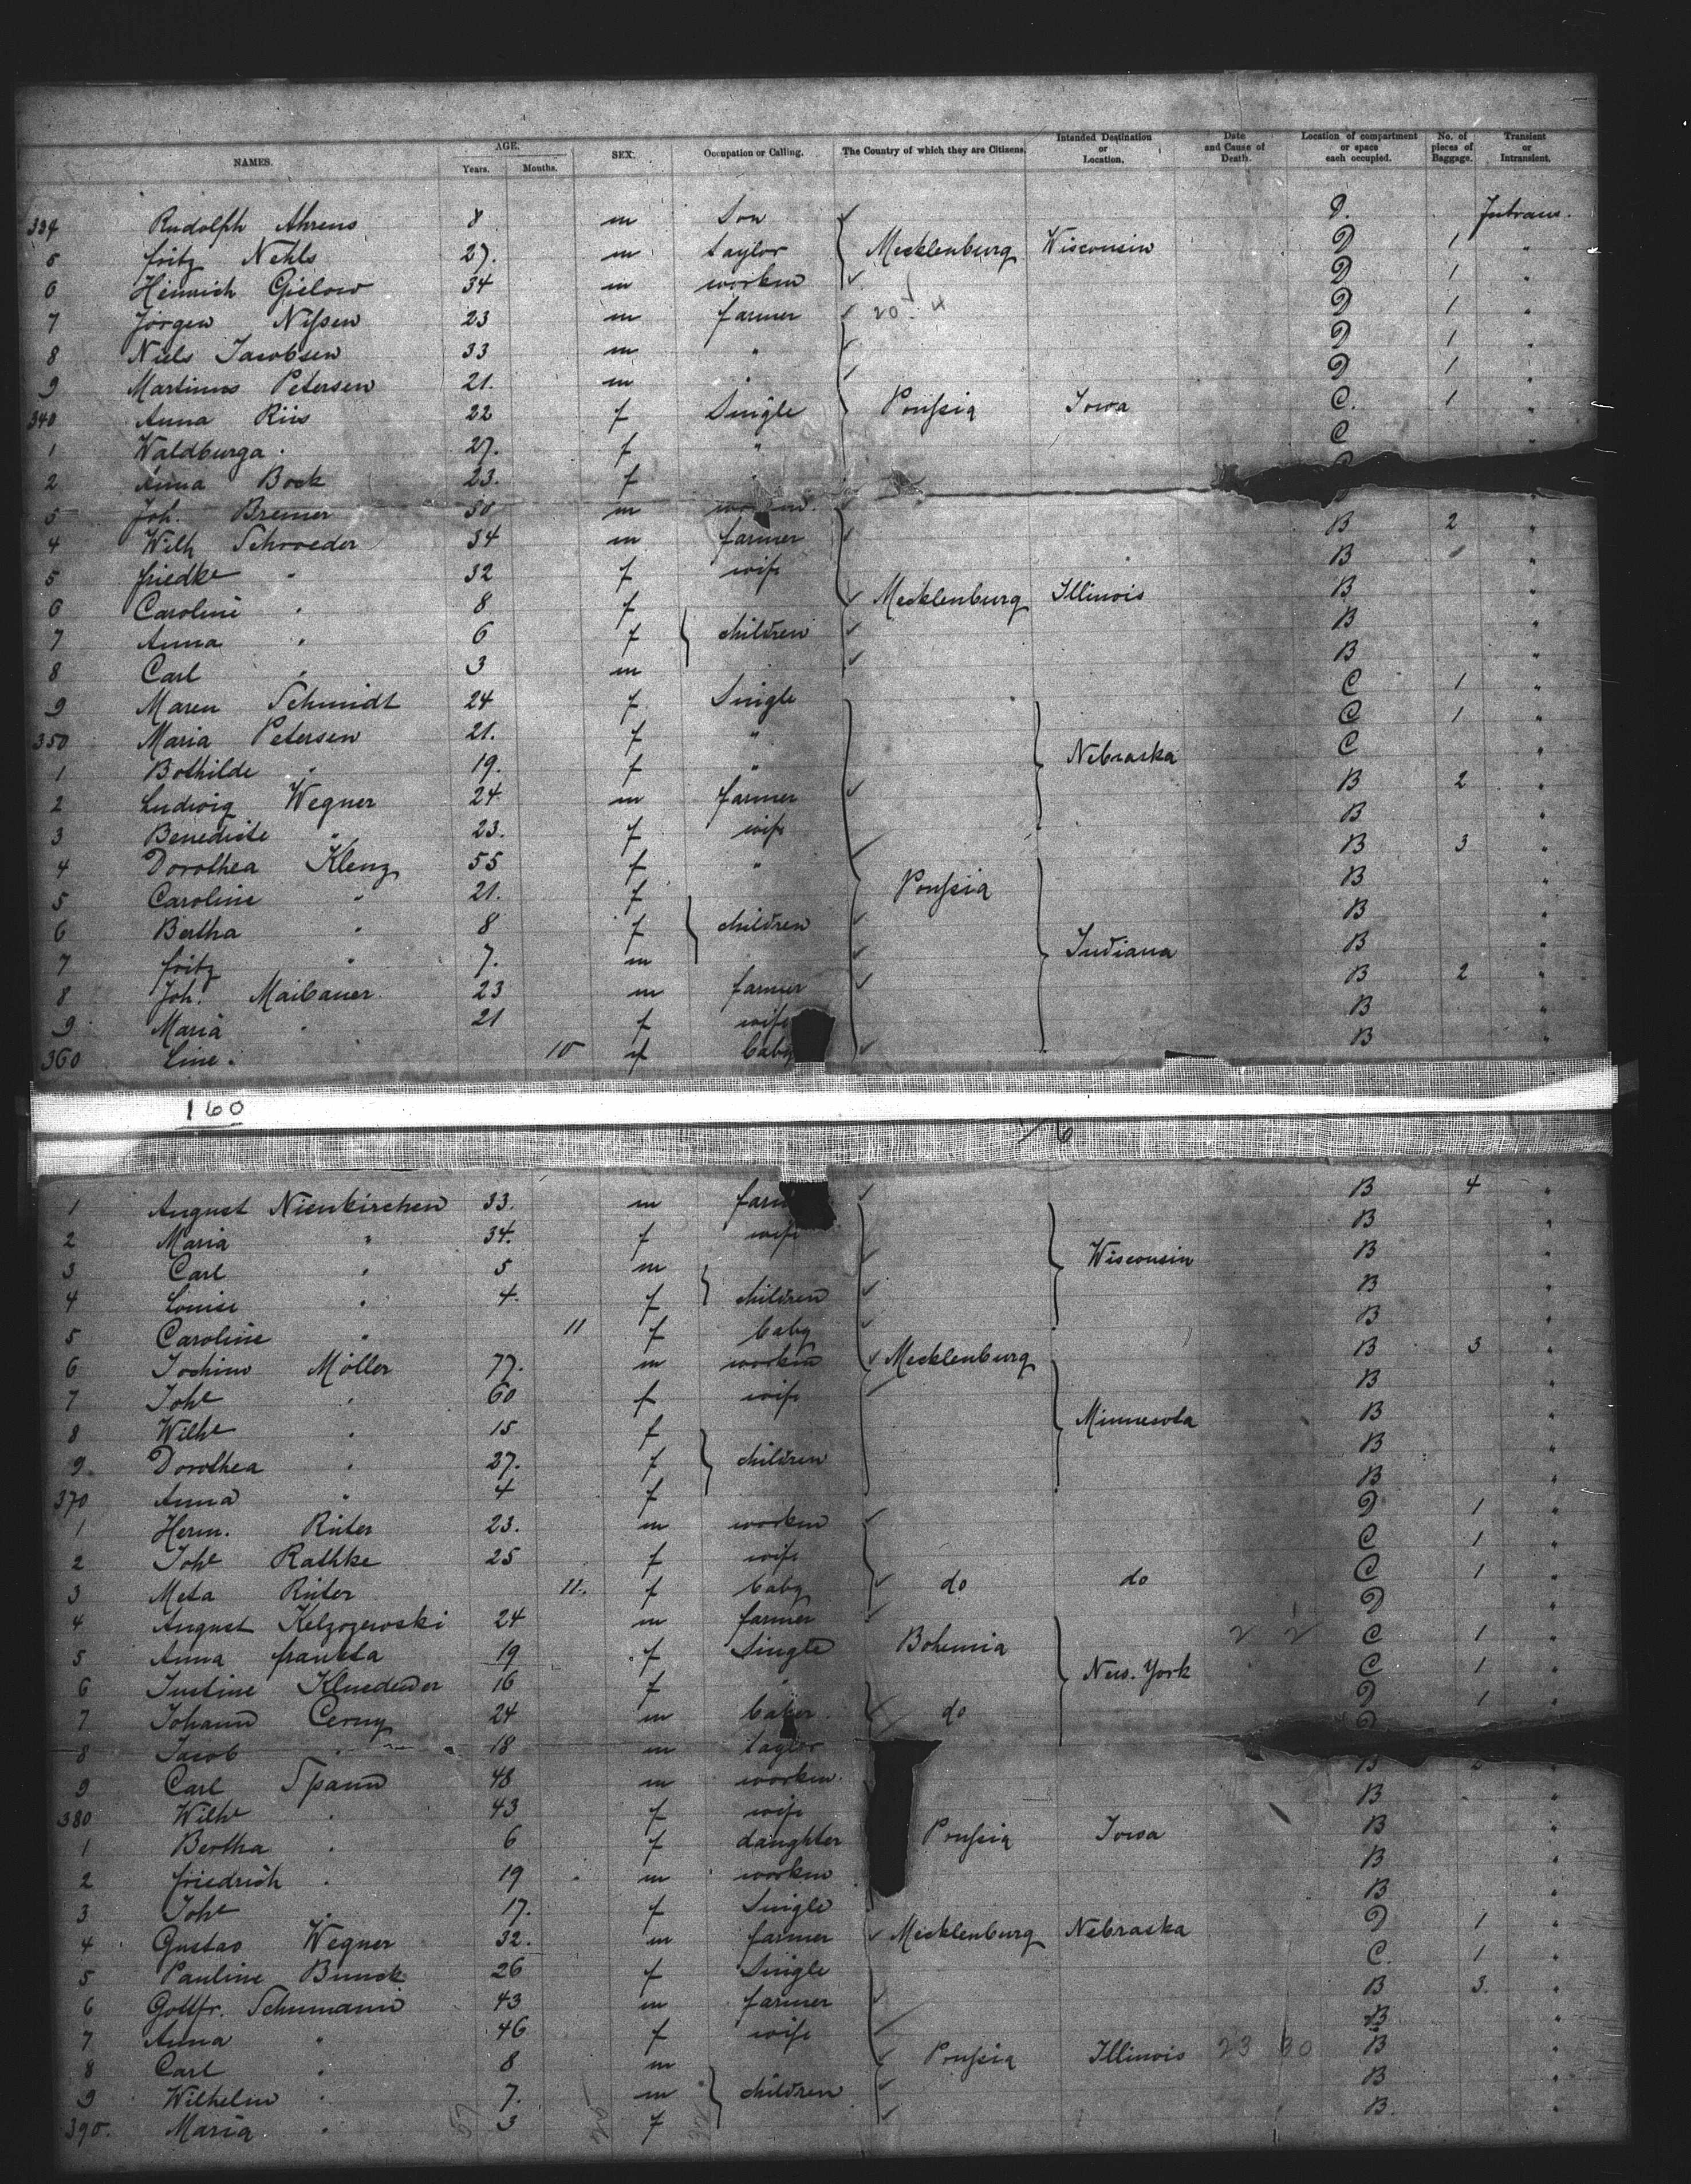 NAMES. AGE. Years. Months. SEX. Occupation or Calling. The Country of which they are Citizens. Intended Destination or Location. Date and Cause of Death. Location of compartment or space each occupied. No. of pieces of Baggage. Transient or Intransient.
334 Rudolph Ahrens 8 m Son D. Intrans.
5 fritz Nehls 27. m taylor Mecklenburg Wisconsin D 1 "
6 Heinrich Gielow 34 m workm D 1 "
7 Jörgen Nißen 23 m farmer 20 4 D 1 "
8 Niels Jacobsen 33 m " D 1 "
9 Martinus Petersen 21. m " D 1 "
340 Anna Riis 22 f Single Preußia Iowa C. 1 "
1 Waldburga " 27. f " C "
2 Anna Bock 23. f
3 Joh. Bremer 50 m workm. "
4 Wilh Schroeder 34 m farmer B 2 "
5 friedke " 32 f wife B "
6 Caroline " 8 f Mecklenburg Illinois B "
7 Anna " 6 f children B "
8 Carl " 3 m B "
9 Maren Schmidt 24 f Single C 1 "
350 Maria Petersen 21. f " C 1 "
1 Bothilde " 19. f " Nebraska C "
2 Ludwig Wegner 24 m farmer B 2 "
3 Benedicte " 23. f wife B "
4 Dorothea Klenz 55 f " B 3 "
5 Caroline " 21. f Preußia B "
6 Bertha " 8 f children B "
7 fritz " 7. m Indiana B "
8 Joh. Maibauer 23 m farmer B 2 "
9 Maria " 21 f wife B "
360 Line " 10 f baby B "
160
1 August Nienkirchen 33. m farm B 4 "
2 Maria " 34. f wife B "
3 Carl " 5 m Wisconsin B "
4 Louise " 4. f children B "
5 Caroline " 11 f baby B "
6 Jochim Möller 77. m workm Mecklenburg B 3 "
7 Johe " 60 f wife B "
8 Wilhe " 15 f Minnesota B "
9. Dorothea " 27. f children B "
370 Anna " 4 f B "
1 Herm. Rüter 23. m workm D 1 "
2 Johe Rathke 25 f wife C 1 "
3 Meta Rüter 11. f baby do do C 1 "
4 August 24 m farmer D "
5 Anna 19 f Single Bohemia C 1 "
6 Justine 16 f " New. York C 1 "
7 Johann Cerny 24 m baker. do D 1 "
8 Jacob " 18 m taylor D
9 Carl Spann 48 m workm. B "
380 Wilhe " 43 f wife B "
1 Bertha " 6 f daughter Preußia Iowa B "
2 friedrich " 19 m workm B "
3 Johe " 17. f Single B "
4 Gustav Wegner 32. m farmer Mecklenburg Nebraska D 1 "
5 Pauline Bunck 26 f Single C. 1 "
6 Gottfr. Schumann 43 m farmer B 3. "
7 Anna " 46 f wife B "
8 Carl " 8 m Preußia Illinois 23 30 B "
9 Wilhelm " 7. m children B "
390. Maria " 3 f B. "